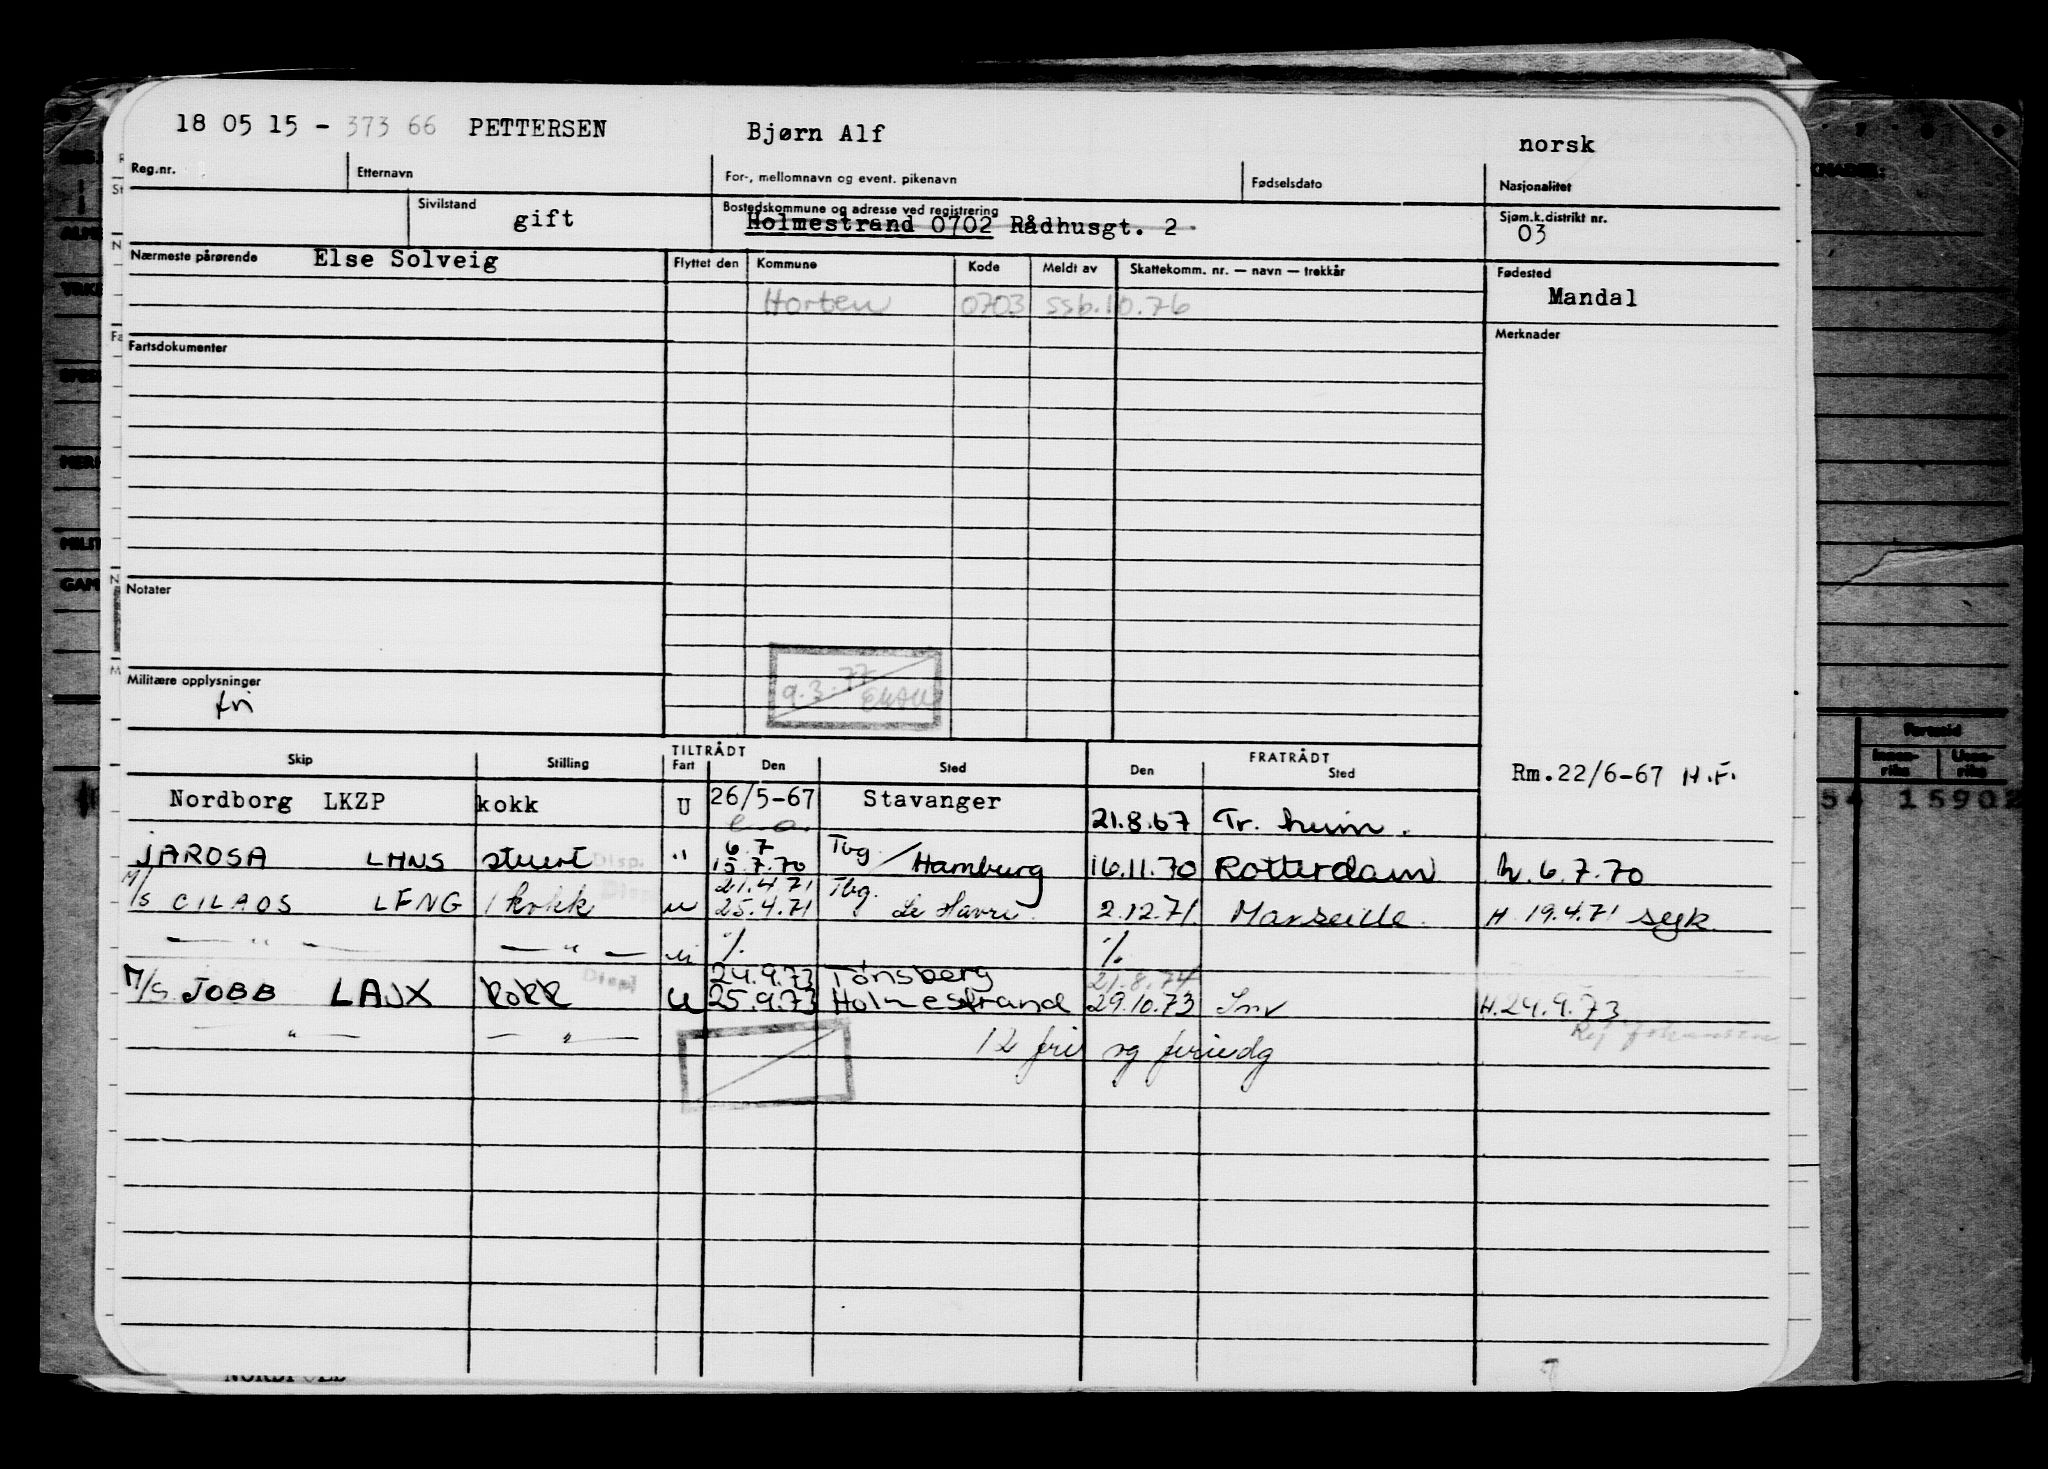 18 05 15 - 373 66 PETTERSEN Bjørn Alf norsk
Reg.nr. Etternavn For-, mellomnavn og event. pikenavn Fødselsdato Nasjonalitet
Sivilstand gift Bostedskommune og adresse ved registrering Sjøm.k.distrikt nr.
Holmestrand 0702 Rådhusgt. 2 03
Nærmeste pårørende Else Solveig Flyttet den Kommune Kode Meldt av Skattekomm. nr. — navn — trekkår Fødested
Horten 0703 ssb.10.76 Mandal
Merknader
Fartsdokumenter
Notater
9.3.77
Militære opplysninger
fri
TILTRÅDT FRATRÅDT
Skip Stilling Fart Den Sted Den Sted
Rm.22/6-67 H.F.
Nordborg LKZP kokk U 26/5-67 Stavanger 21.8.67 Tr. heim.
6.7 Tbg
JAROSA LHNS stuert Disp. " 15.7.70 / Hamburg 16.11.70 Rotterdam h. 6.7.70
21.4.71 Tbg.
M/S CILAOS LFNG kokk Disp u 25.4.71 Le Havre. 2.12.71. Marseille. H 19.4.71 syk.
— " — — " — u %. %.
24.9.73 Tønsberg 21.8.74
M/S JOBB LAJX kokk Displ u 25.9.73 Holmestrand 29.10.73 Inv H.24.9.73
— " — — " — Rej Johansen
12 fri og feriedg
54 15902